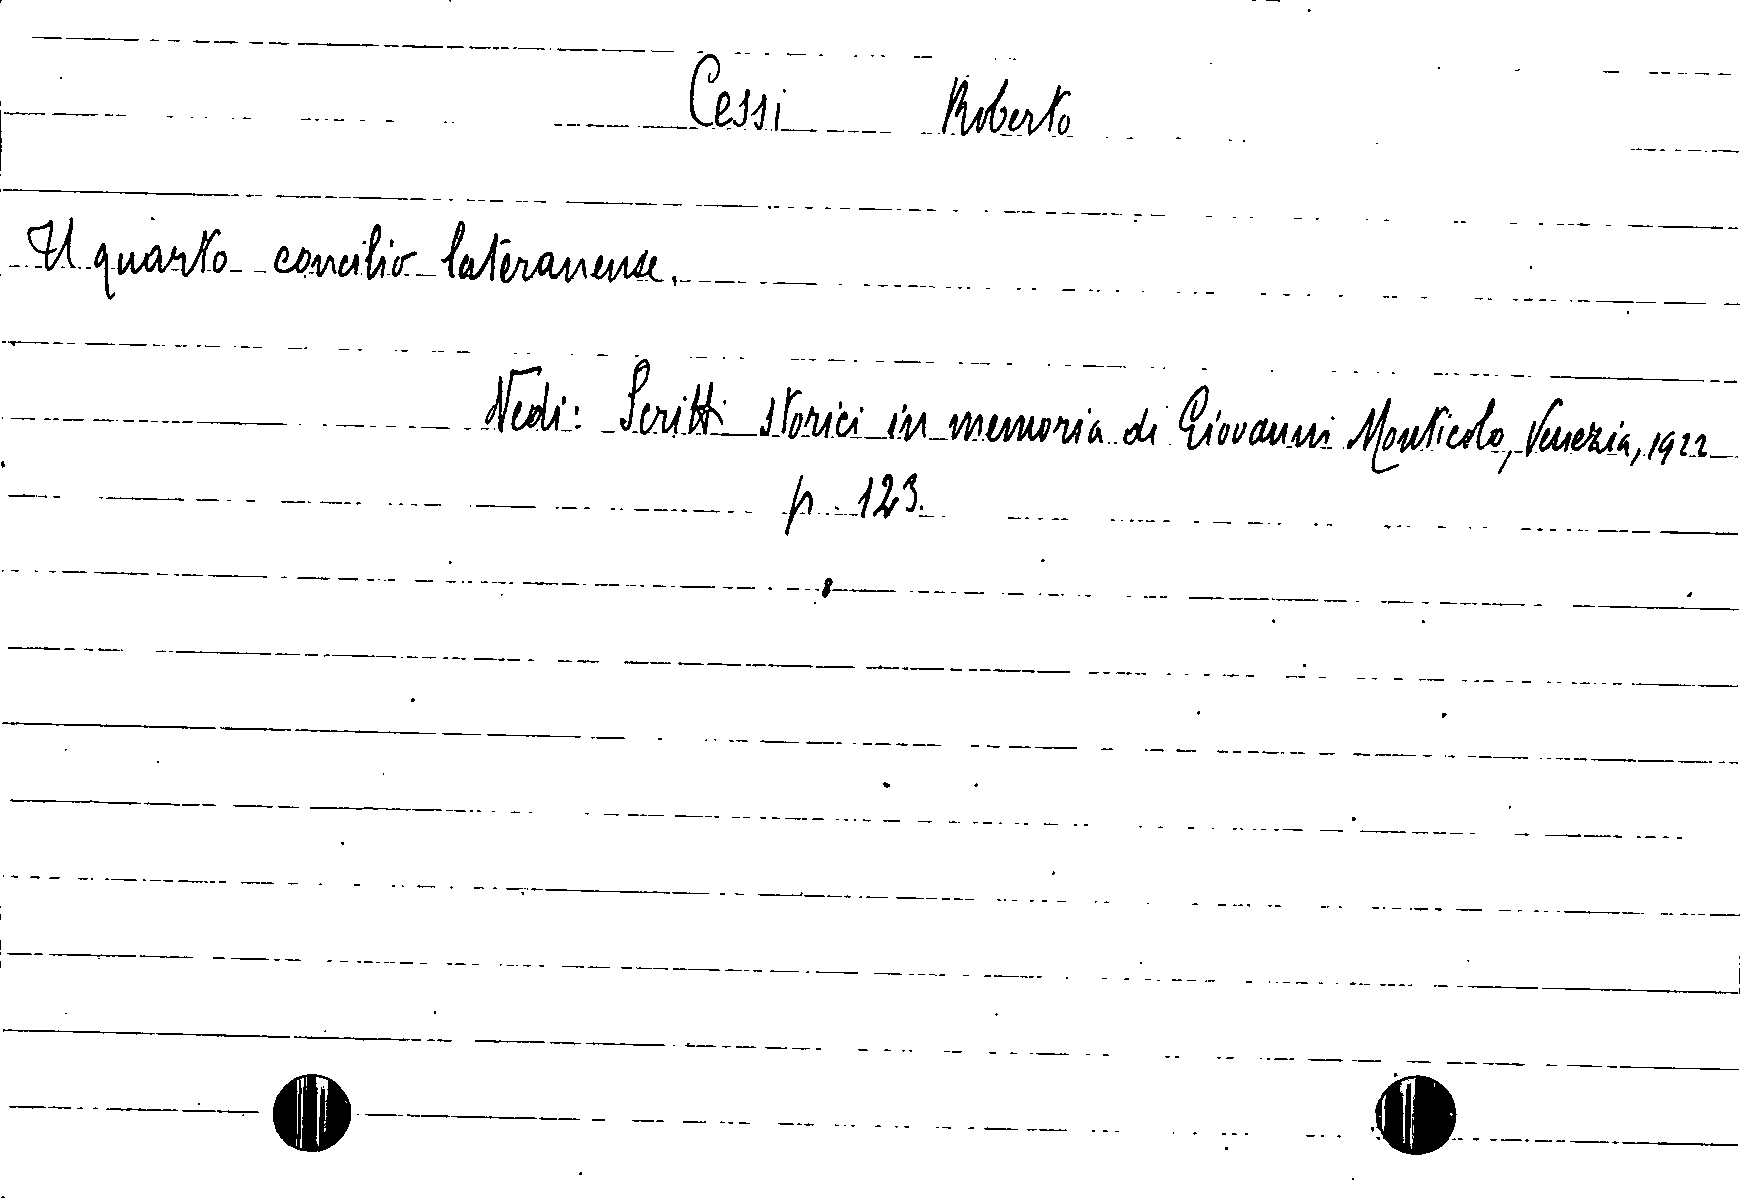 Cessi Roberto
Il quarto concilio lateranense.
Vedi: Scritti storici in memoria di Giovanni Monticolo, Venezia, 1922
p. 123.